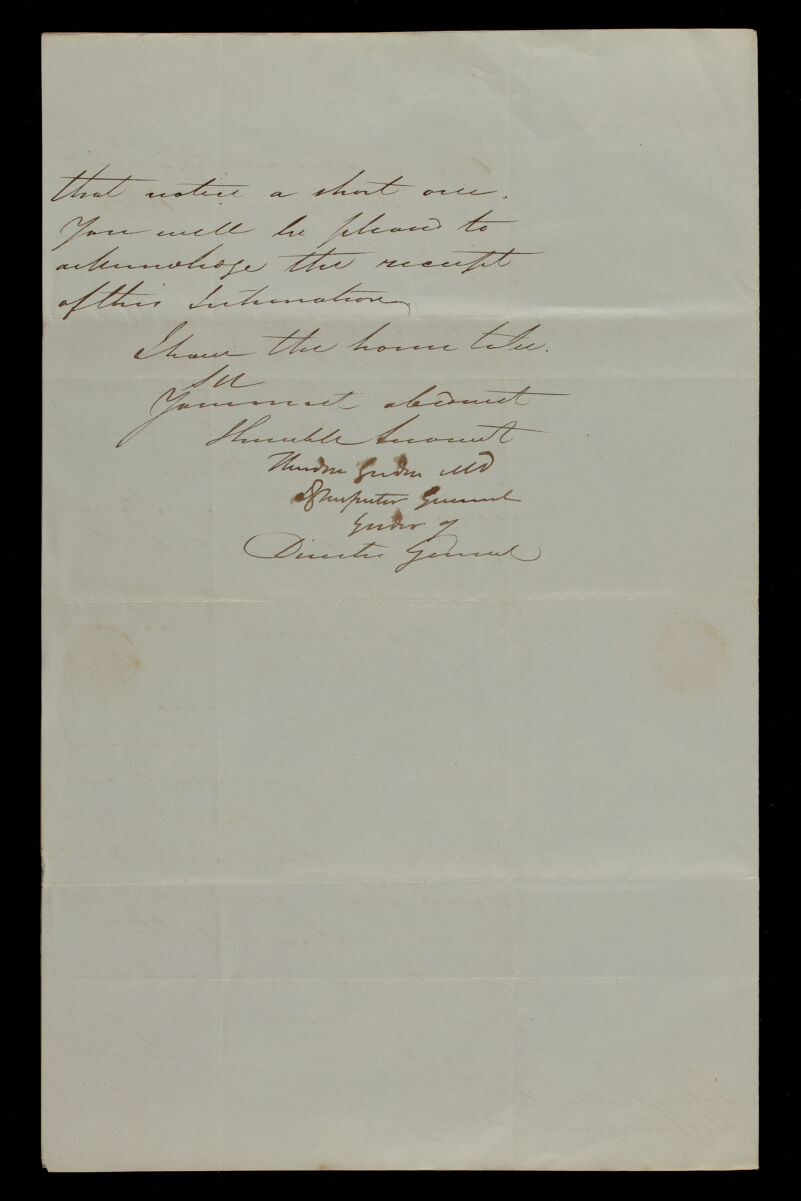 that notice a short one.
You will be pleased to
acknowledge the receipt
of this Intimation,
I have the honor to be.
Sir
Your most obedient
Humble Servant
Theodore Gordon MD
Dy Inspector General
for
Director General